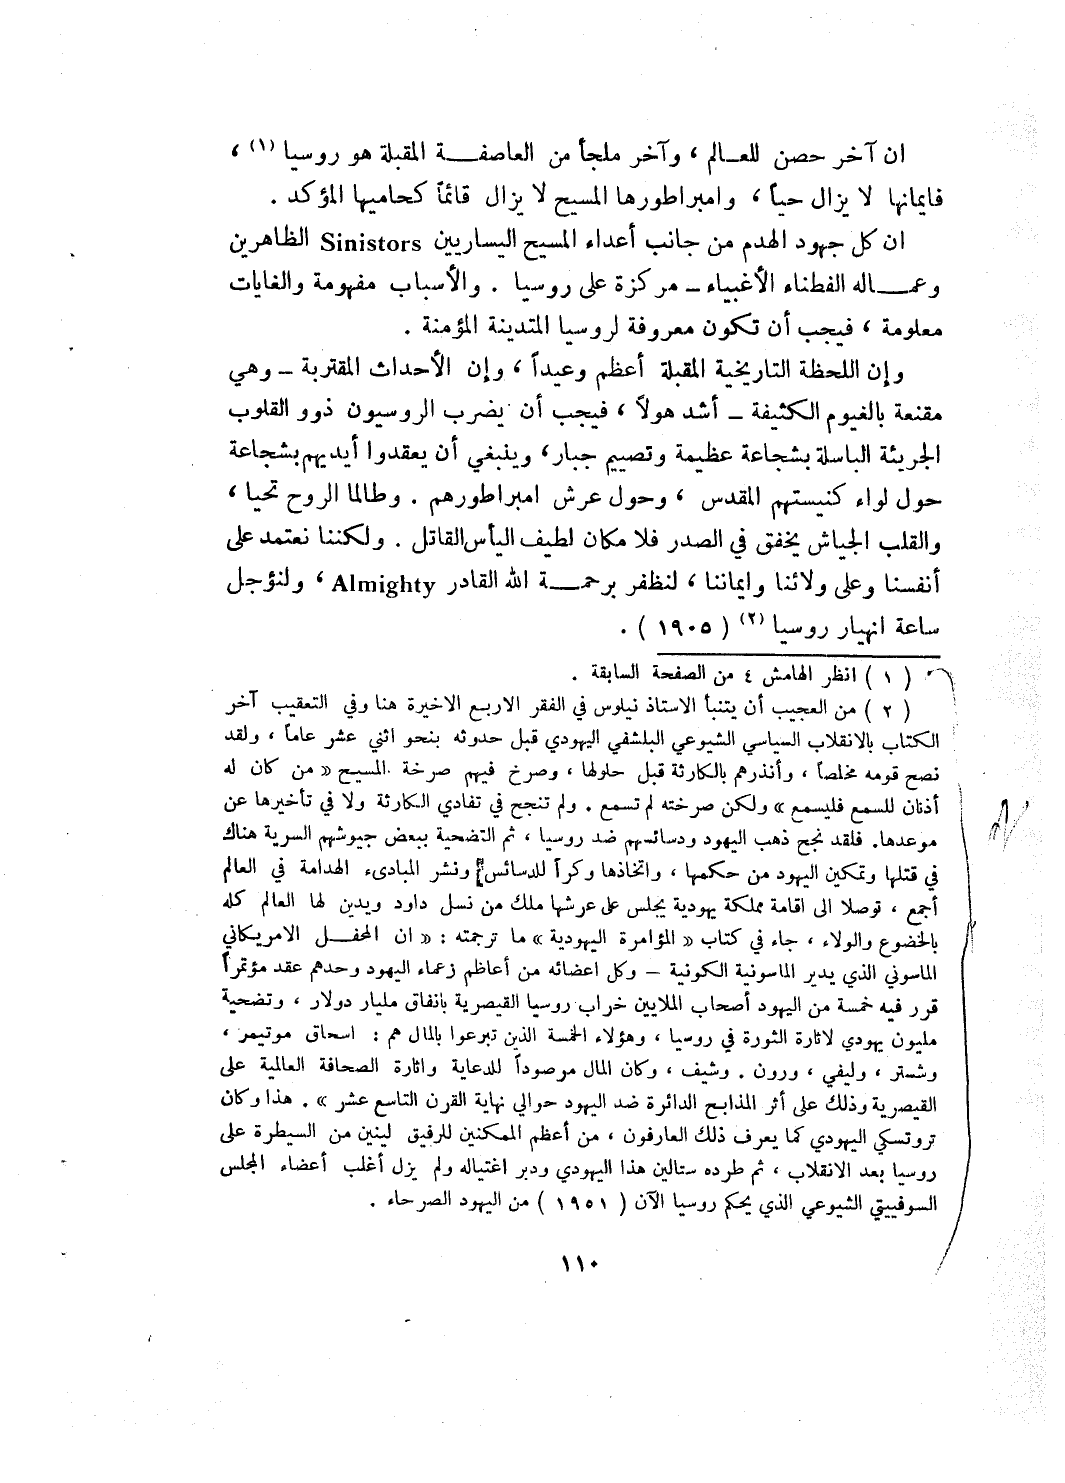 ان آخر حصن للعالم ، وآخر ملجأ من العاصفة المقبلة هو روسيا (١) ،
فايمانها لا يزال حياً ، وامبراطورها المسيح لا يزال قائماً كحاميها المؤكد .
ان كل جهود الهدم من جانب أعداء المسيح اليساريين Sinistors الظاهرين
وعماله الفطناء الأغبياء – مركزة على روسيا . والأسباب مفهومة والغايات
معلومة ، فيجب أن تكون معروفة لروسيا المتدينة المؤمنة .
وإن اللحظة التاريخية المقبلة أعظم وعيداً ، وإن الأحداث المقتربة – وهي
مقنعة بالغيوم الكثيفة – أشد هولاً ، فيجب أن يضرب الروسيون ذوو القلوب
الجريئة الباسلة بشجاعة عظيمة وتصميم جبار ، وينبغي أن يعقدوا أيديهم بشجاعة
حول لواء كنيستهم المقدس ، وحول عرش امبراطورهم . وطالما الروح تحيا ،
والقلب الجياش يخفق في الصدر فلا مكان لطيف اليأس القاتل . ولكننا نعتمد على
أنفسنا وعلى ولائنا وايماننا ، لنظفر برحمة الله القادر Almighty ، ولنؤجل
ساعة انهيار روسيا (٢) ( ١٩٠٥ ) .
( ١ ) انظر الهامش ٤ من الصفحة السابقة .
( ٢ ) من العجيب أن يتنبأ الاستاذ نيلوس في الفقر الاربع الاخيرة هنا وفي التعقيب آخر
الكتاب بالانقلاب السياسي الشيوعي البلشفي اليهودي قبل حدوثه بنحو اثني عشر عاماً ، ولقد
نصح قومه مخلصاً ، وأنذرهم بالكارثة قبل حلولها ، وصرخ فيهم صرخة المسيح « من كان له
أذنان للسمع فليسمع » ولكن صرخته لم تسمع . ولم تنجح في تفادي الكارثة ولا في تأخيرها عن
موعدها. فلقد نجح ذهب اليهود ودسائسهم ضد روسيا ، ثم التضحية ببعض جيوشهم السرية هناك
في قتلها وتمكين اليهود من حكمها ، واتخاذها وكراً للدسائس ونشر المبادىء الهدامة في العالم
أجمع ، توصلا الى اقامة مملكة يهودية يجلس على عرشها ملك من نسل داود ويدين لها العالم كله
بالخضوع والولاء ، جاء في كتاب « المؤامرة اليهودية » ما ترجمته : « ان المحفل الامريكاني
الماسوني الذي يدير الماسونية الكونية – وكل اعضائه من أعاظم زعماء اليهود وحدهم عقد مؤتمراً
قرر فيه خمسة من اليهود أصحاب الملايين خراب روسيا القيصرية بانفاق مليار دولار ، وتضحية
مليون يهودي لاثارة الثورة في روسيا ، وهؤلاء الخمسة الذين تبرعوا بالمال هم : اسحاق موتيمر ،
وشستر ، وليفي ، ورون . وشيف ، وكان المال مرصوداً للدعاية واثارة الصحافة العالمية على
القيصرية وذلك على أثر المذابح الدائرة ضد اليهود حوالي نهاية القرن التاسع عشر » . هذا وكان
تروتسكي اليهودي كما يعرف ذلك العارفون ، من أعظم الممكنين للرفيق لينين من السيطرة على
روسيا بعد الانقلاب ، ثم طرده ستالين هذا اليهودي ودبر اغتياله ولم يزل أغلب أعضاء المجلس
السوفييتي الشيوعي الذي يحكم روسيا الآن ( ١٩٥١ ) من اليهود الصرحاء .
١١٠